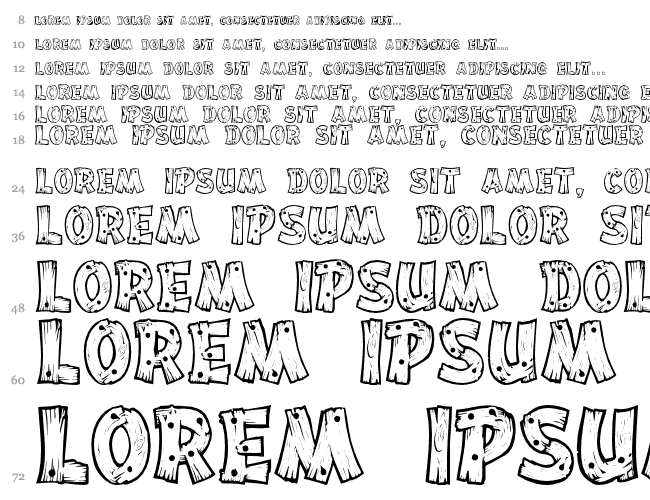 8 LOREM IPSUM DOLOR SIT AMET, CONSECTETUER ADIPISCING ELIT...
10 LOREM IPSUM DOLOR SIT AMET, CONSECTETUER ADIPISCING ELIT...
12 LOREM IPSUM DOLOR SIT AMET, CONSECTETUER ADIPISCING ELIT...
14 LOREM IPSUM DOLOR SIT AMET, CONSECTETUER ADIPISCING E
16 LOREM IPSUM DOLOR SIT AMET, CONSECTETUER ADIPIS
18 LOREM IPSUM DOLOR SIT AMET, CONSECTETUER
24 LOREM IPSUM DOLOR SIT AMET, CO
36 LOREM IPSUM DOLOR SI
48 LOREM IPSUM DOL
60 LOREM IPSUM
72 LOREM IPSU